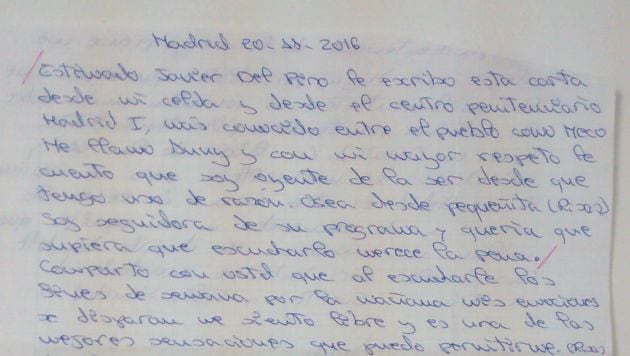 Madrid 20-11-2016
Estimado Javier Del Pino le escribo esta carta
desde mi celda y desde el centro penitenciario
Madrid I, más conocido entre el pueblo como Meco
Me llamo Dumy y con mi mayor respeto le
cuento que soy oyente de la ser desde que
tengo uso de razón. Osea desde pequeñita (Risas)
Soy seguidora de su programa y quería que
supiera que escucharlo merece la pena.
Comparto con usted que al escucharle los
fines de semana por la mañana mis emociones
se disparan me siento libre y es una de las
mejores sensaciones que puedo permitirme (Risas)